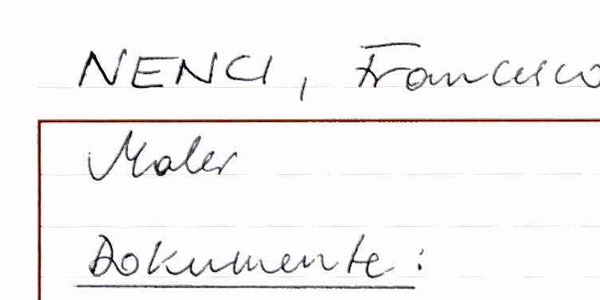 NENCI, Francesco
Maler
Dokumente: